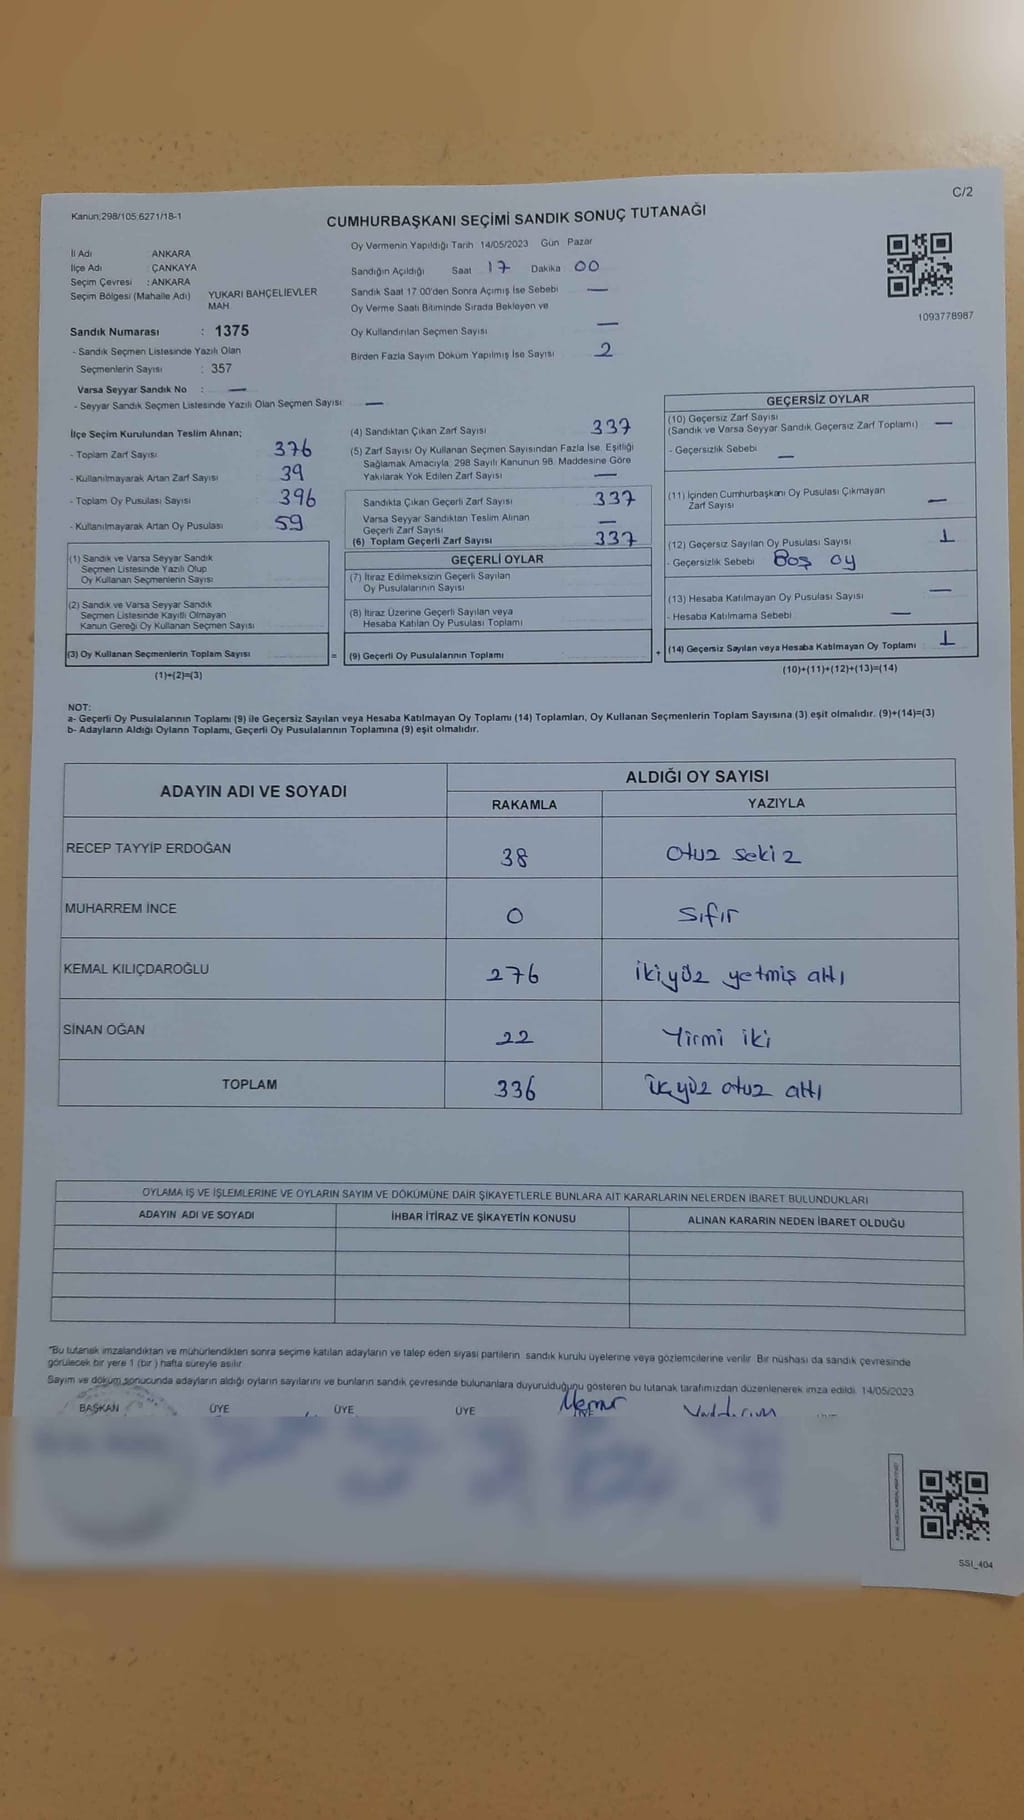 C/2
Kanun;298/105;6271/18-1
CUMHURBAŞKANI SEÇİMİ SANDIK SONUÇ TUTANAĞI
İl Adı ANKARA
İlçe Adı : ÇANKAYA
Seçim Çevresi : ANKARA
Seçim Bölgesi (Mahalle Adı) YUKARI BAHÇELİEVLER
MAH.
Sandık Numarası : 1375
- Sandık Seçmen Listesinde Yazılı Olan
Seçmenlerin Sayısı : 357
Varsa Seyyar Sandık No : —
- Seyyar Sandık Seçmen Listesinde Yazılı Olan Seçmen Sayısı —
Oy Vermenin Yapıldığı Tarih 14/05/2023 Gün Pazar
Sandığın Açıldığı Saat 17 Dakika 00
Sandık Saat 17:00'den Sonra Açımış İse Sebebi —
Oy Verme Saati Bitiminde Sırada Bekleyen ve
Oy Kullandırılan Seçmen Sayısı —
Birden Fazla Sayım Döküm Yapılmış İse Sayısı 2
1093778987
İlçe Seçim Kurulundan Teslim Alınan;
- Toplam Zarf Sayısı 376
- Kullanılmayarak Artan Zarf Sayısı 39
- Toplam Oy Pusulası Sayısı 396
- Kullanılmayarak Artan Oy Pusulası 59
(1) Sandık ve Varsa Seyyar Sandık
Seçmen Listesinde Yazılı Olup
Oy Kullanan Seçmenlerin Sayısı
(2) Sandık ve Varsa Seyyar Sandık
Seçmen Listesinde Kayıtlı Olmayan
Kanun Gereği Oy Kullanan Seçmen Sayısı
(3) Oy Kullanan Seçmenlerin Toplam Sayısı
(1)+(2)=(3)
(4) Sandıktan Çıkan Zarf Sayısı 337
(5) Zarf Sayısı Oy Kullanan Seçmen Sayısından Fazla İse, Eşitliği
Sağlamak Amacıyla, 298 Sayılı Kanunun 98. Maddesine Göre
Yakılarak Yok Edilen Zarf Sayısı —
Sandıkta Çıkan Geçerli Zarf Sayısı 337
Varsa Seyyar Sandıktan Teslim Alınan
Geçerli Zarf Sayısı —
(6) Toplam Geçerli Zarf Sayısı 337
GEÇERLİ OYLAR
(7) İtiraz Edilmeksizin Geçerli Sayılan
Oy Pusulalarının Sayısı
(8) İtiraz Üzerine Geçerli Sayılan veya
Hesaba Katılan Oy Pusulası Toplamı
= (9) Geçerli Oy Pusulalarının Toplamı
GEÇERSİZ OYLAR
(10) Geçersiz Zarf Sayısı
(Sandık ve Varsa Seyyar Sandık Geçersiz Zarf Toplamı) —
- Geçersizlik Sebebi —
(11) İçinden Cumhurbaşkanı Oy Pusulası Çıkmayan
Zarf Sayısı —
(12) Geçersiz Sayılan Oy Pusulası Sayısı 1
- Geçersizlik Sebebi Boş oy
(13) Hesaba Katılmayan Oy Pusulası Sayısı —
- Hesaba Katılmama Sebebi —
+ (14) Geçersiz Sayılan veya Hesaba Katılmayan Oy Toplamı 1
(10)+(11)+(12)+(13)=(14)
NOT:
a- Geçerli Oy Pusulalarının Toplamı (9) ile Geçersiz Sayılan veya Hesaba Katılmayan Oy Toplamı (14) Toplamları, Oy Kullanan Seçmenlerin Toplam Sayısına (3) eşit olmalıdır. (9)+(14)=(3)
b- Adayların Aldığı Oyların Toplamı, Geçerli Oy Pusulalarının Toplamına (9) eşit olmalıdır.
ADAYIN ADI VE SOYADI ALDIĞI OY SAYISI
RAKAMLA YAZIYLA
RECEP TAYYİP ERDOĞAN 38 otuz sekiz
MUHARREM İNCE 0 sıfır
KEMAL KILIÇDAROĞLU 276 ikiyüz yetmiş altı
SİNAN OĞAN 22 Yirmi iki
TOPLAM 336 üçyüz otuz altı
OYLAMA İŞ VE İŞLEMLERİNE VE OYLARIN SAYIM VE DÖKÜMÜNE DAİR ŞİKAYETLERLE BUNLARA AİT KARARLARIN NELERDEN İBARET BULUNDUKLARI
ADAYIN ADI VE SOYADI İHBAR İTİRAZ VE ŞİKAYETİN KONUSU ALINAN KARARIN NEDEN İBARET OLDUĞU
*Bu tutanak imzalandıktan ve mühürlendikten sonra seçime katılan adayların ve talep eden siyasi partilerin sandık kurulu üyelerine veya gözlemcilerine verilir. Bir nüshası da sandık çevresinde
görülecek bir yere 1 (bir) hafta süreyle asılır.
Sayım ve döküm sonucunda adayların aldığı oyların sayılarını ve bunların sandık çevresinde bulunanlara duyurulduğunu gösteren bu tutanak tarafımızdan düzenlenerek imza edildi. 14/05/2023
BAŞKAN ÜYE ÜYE ÜYE Memur
SSI_404